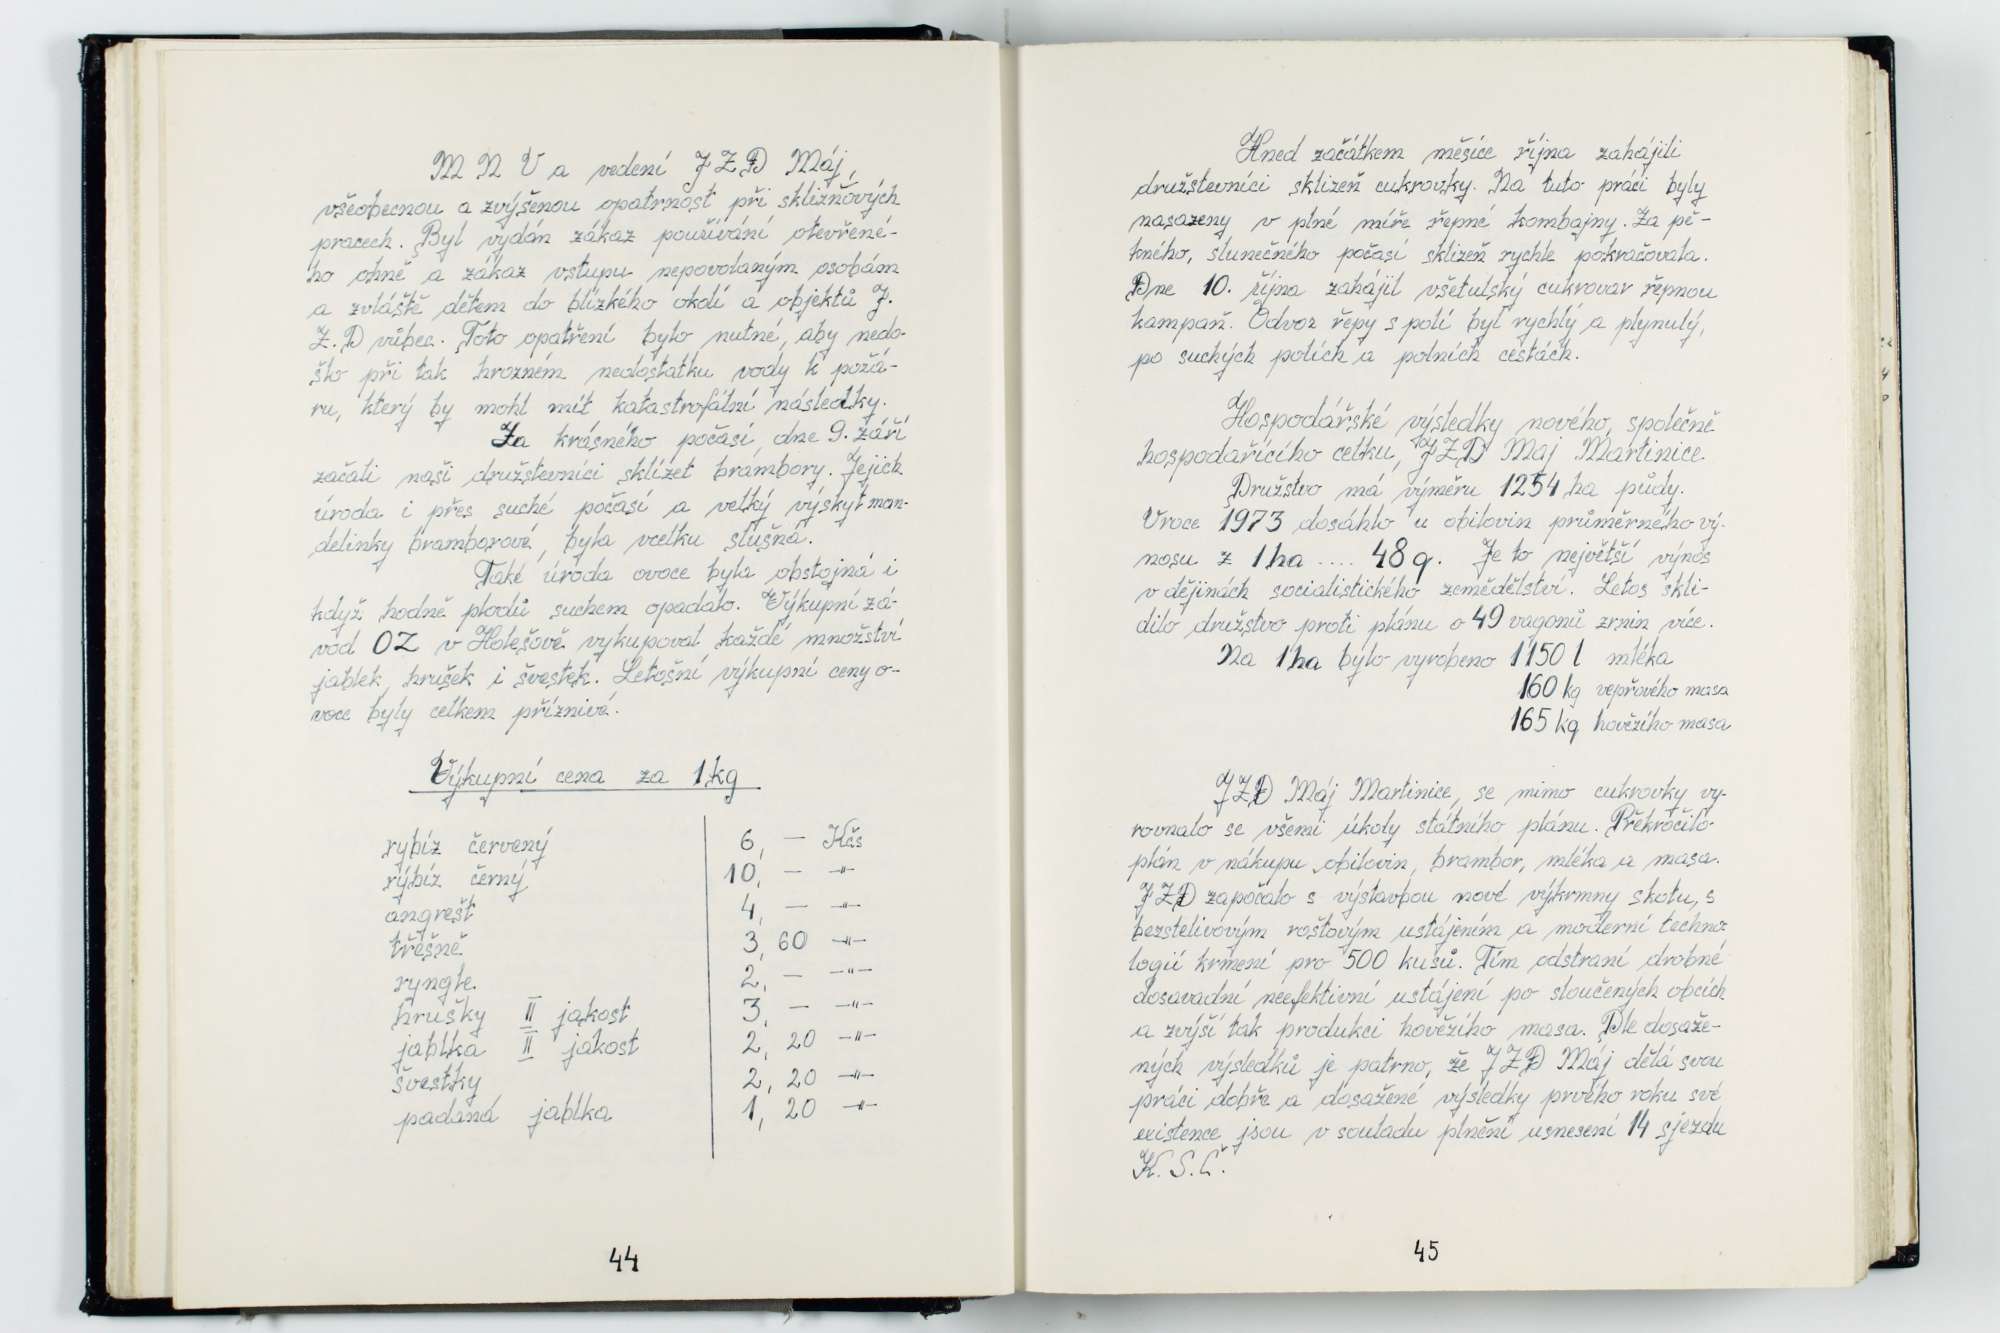 M N V a vedení J Z D Máj,
všeobecnou a zvýšenou opatrnost při sklizňových
pracech. Byl vydán zákaz používání otevřené-
ho ohně a zákaz vstupu nepovolaným osobám
a zvláště dětem do blízkého okolí a objektů J.
Z.D vůbec. Toto opatření bylo nutné, aby nedo-
šlo při tak hrozném nedostatku vody k požá-
ru, který by mohl mít katastrofální následky.
Za krásného počasí, dne 9. září
začali naši družstevníci sklízet brambory. Jejich
úroda i přes suché počasí a velký výskyt man-
delinky bramborové, byla vcelku slušná.
Také úroda ovoce byla obstojná i
když hodně plodů suchem opadalo. Výkupní zá-
vod OZ v Holešově vykupoval každé množství
jablek, hrušek i švestek. Letošní výkupní ceny o-
voce byly celkem příznivé.
Výkupní cena za 1 kg
rybíz červený 6, — Kčs
rybíz černý 10, — -"-
angrešt 4, — -"-
třešně 3, 60 -"-
ryngle 2, — -"-
hrušky II jakost 3, — -"-
jablka II jakost 2, 20 -"-
švestky 2, 20 -"-
padaná jablka 1, 20 -"-
44
Hned začátkem měsíce října zahájili
družstevníci sklizeň cukrovky. Na tuto práci byly
nasazeny v plné míře řepné kombajny. Za pě-
kného, slunečného počasí sklizeň rychle pokračovala.
Dne 10. října zahájil všetulský cukrovar řepnou
kampaň. Odvoz řepy s polí byl rychlý a plynulý,
po suchých polích a polních cestách.
Hospodářské výsledky nového, společně
hospodařícího celku, JZD Maj Martinice
Družstvo má výměru 1254 ha půdy.
V roce 1973 dosáhlo u obilovin průměrného vý-
nosu z 1 ha .... 48 q. Je to největší výnos
v dějinách socialistického zemědělství. Letos skli-
dilo družstvo proti plánu o 49 vagonů zrnin více.
Na 1 ha bylo vyrobeno 1150 l mléka
160 kg vepřového masa
165 kg hovězího masa
JZD Máj Martinice, se mimo cukrovky vy-
rovnalo se všemi úkoly státního plánu. Překročilo
plán v nákupu obilovin, brambor, mléka a masa.
JZD započalo s výstavbou nové výkrmny skotu, s
bezstelivovým roštovým ustájením a moderní techno-
logií krmení pro 500 kusů. Tím odstraní drobné
dosavadní neefektivní ustájení po sloučených obcích
a zvýší tak produkci hovězího masa. Dle dosaže-
ných výsledků je patrno, že JZD Máj dělá svou
práci dobře a dosažené výsledky prvého roku své
existence jsou v souladu plnění usnesení 14 sjezdu
K.S.Č.
45